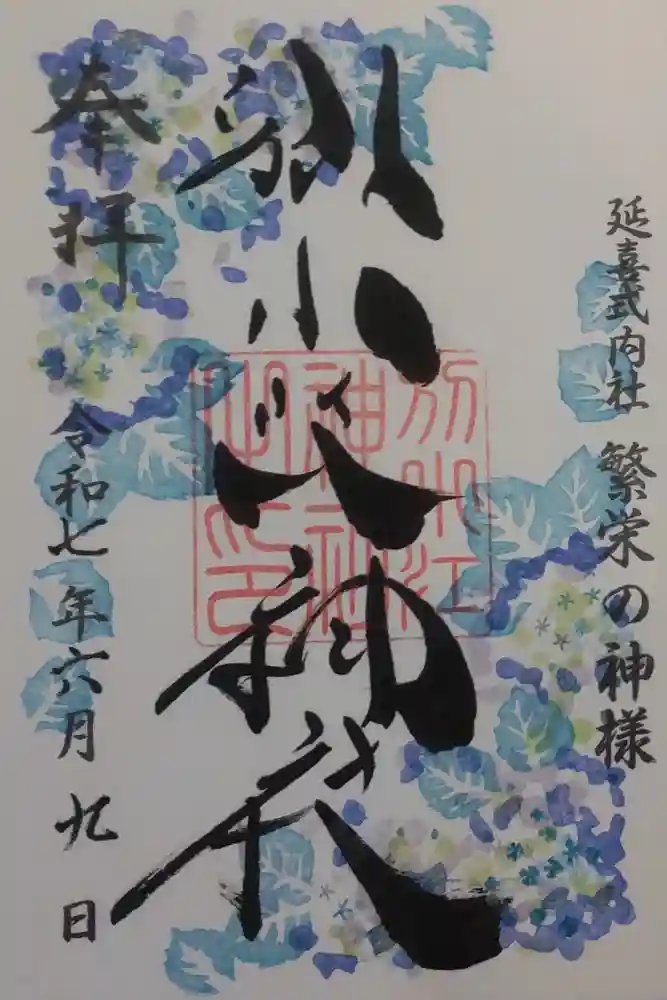 延喜式内社 繁栄の神様
別小江神社
別小江
神社
之印
奉拝 令和七年六月九日